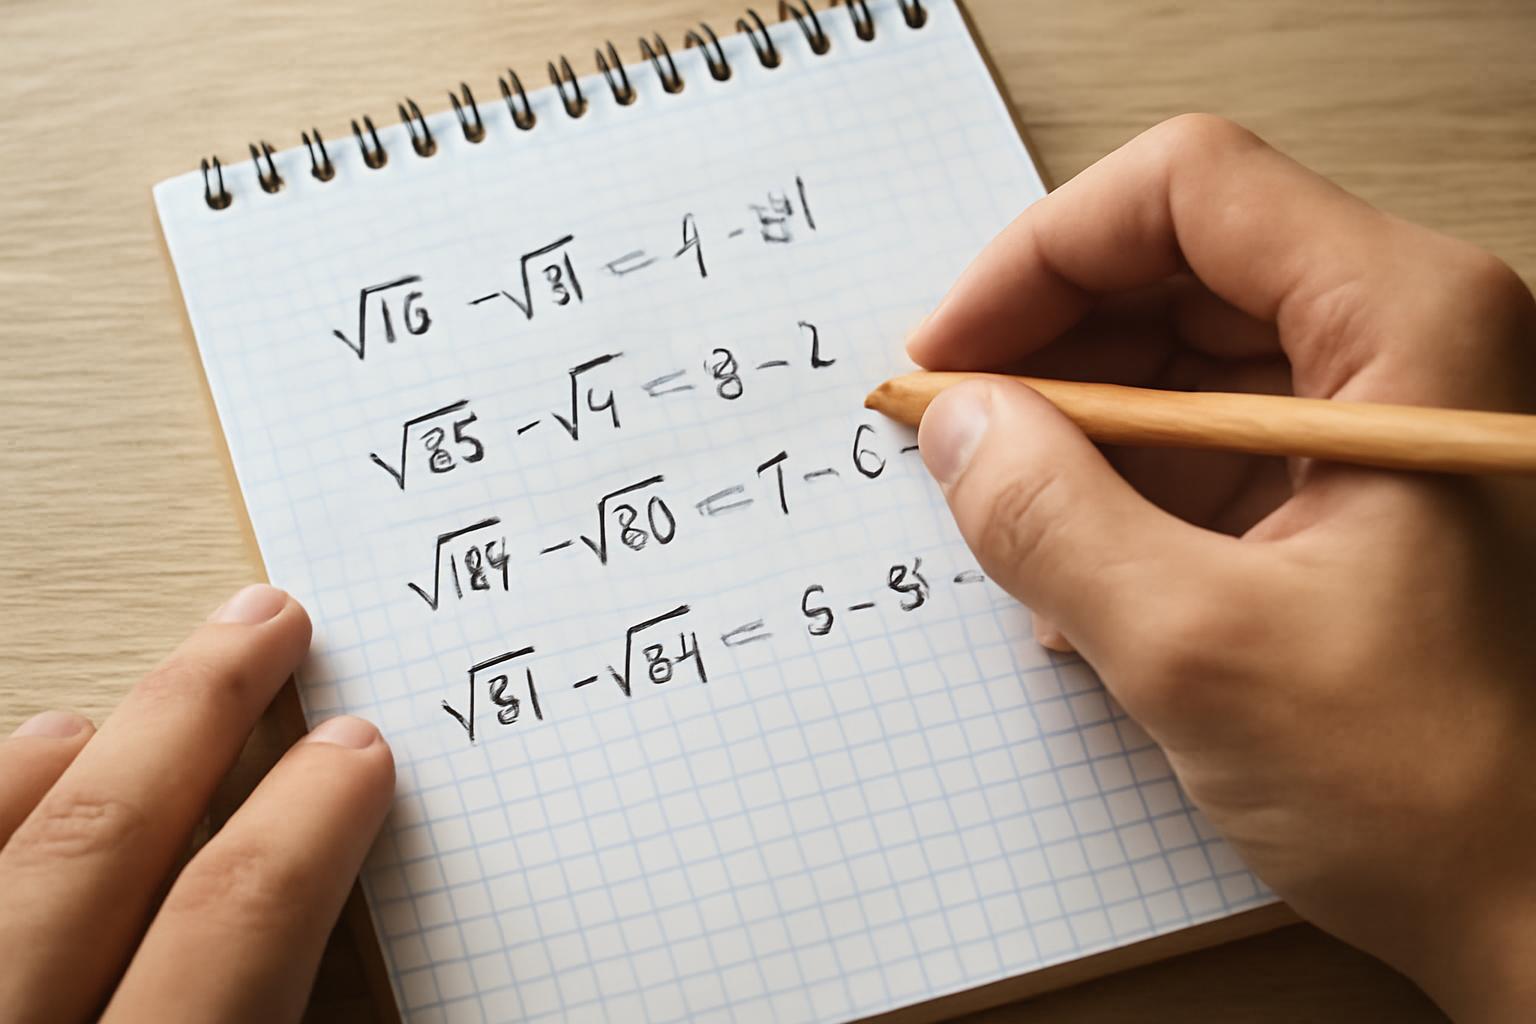 √16 - √81 = 4 -
√85 - √4 = 8 - 2
√184 - √80 = 7 - 6 -
√81 - √84 = 5 - 8 -